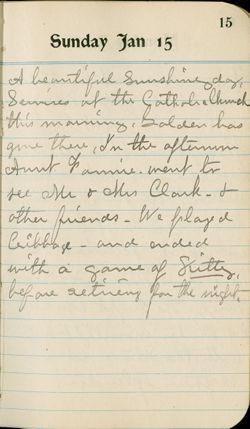 15
Sunday Jan 15
A beautiful Sunshiney day,
Services at the Catholic Church
this morning, Golden has
gone there, In the afternoon
Aunt Fannie went to
see Mr & Mrs Clark - &
other friends - We played
Cribbage - and ended
with a game of Kitty,
before retiring for the night